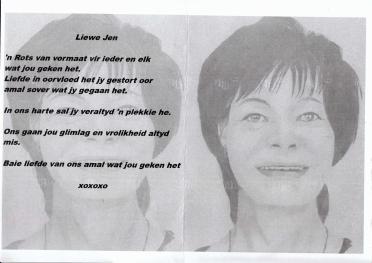 Liewe Jen
'n Rots van vormaat vir ieder en elk
wat jou geken het.
Liefde in oorvloed het jy gestort oor
amal sover wat jy gegaan het.
In ons harte sal jy veraltyd 'n plekkie he.
Ons gaan jou glimlag en vrolikheid altyd
mis.
Baie liefde van ons amal wat jou geken het
xoxoxo